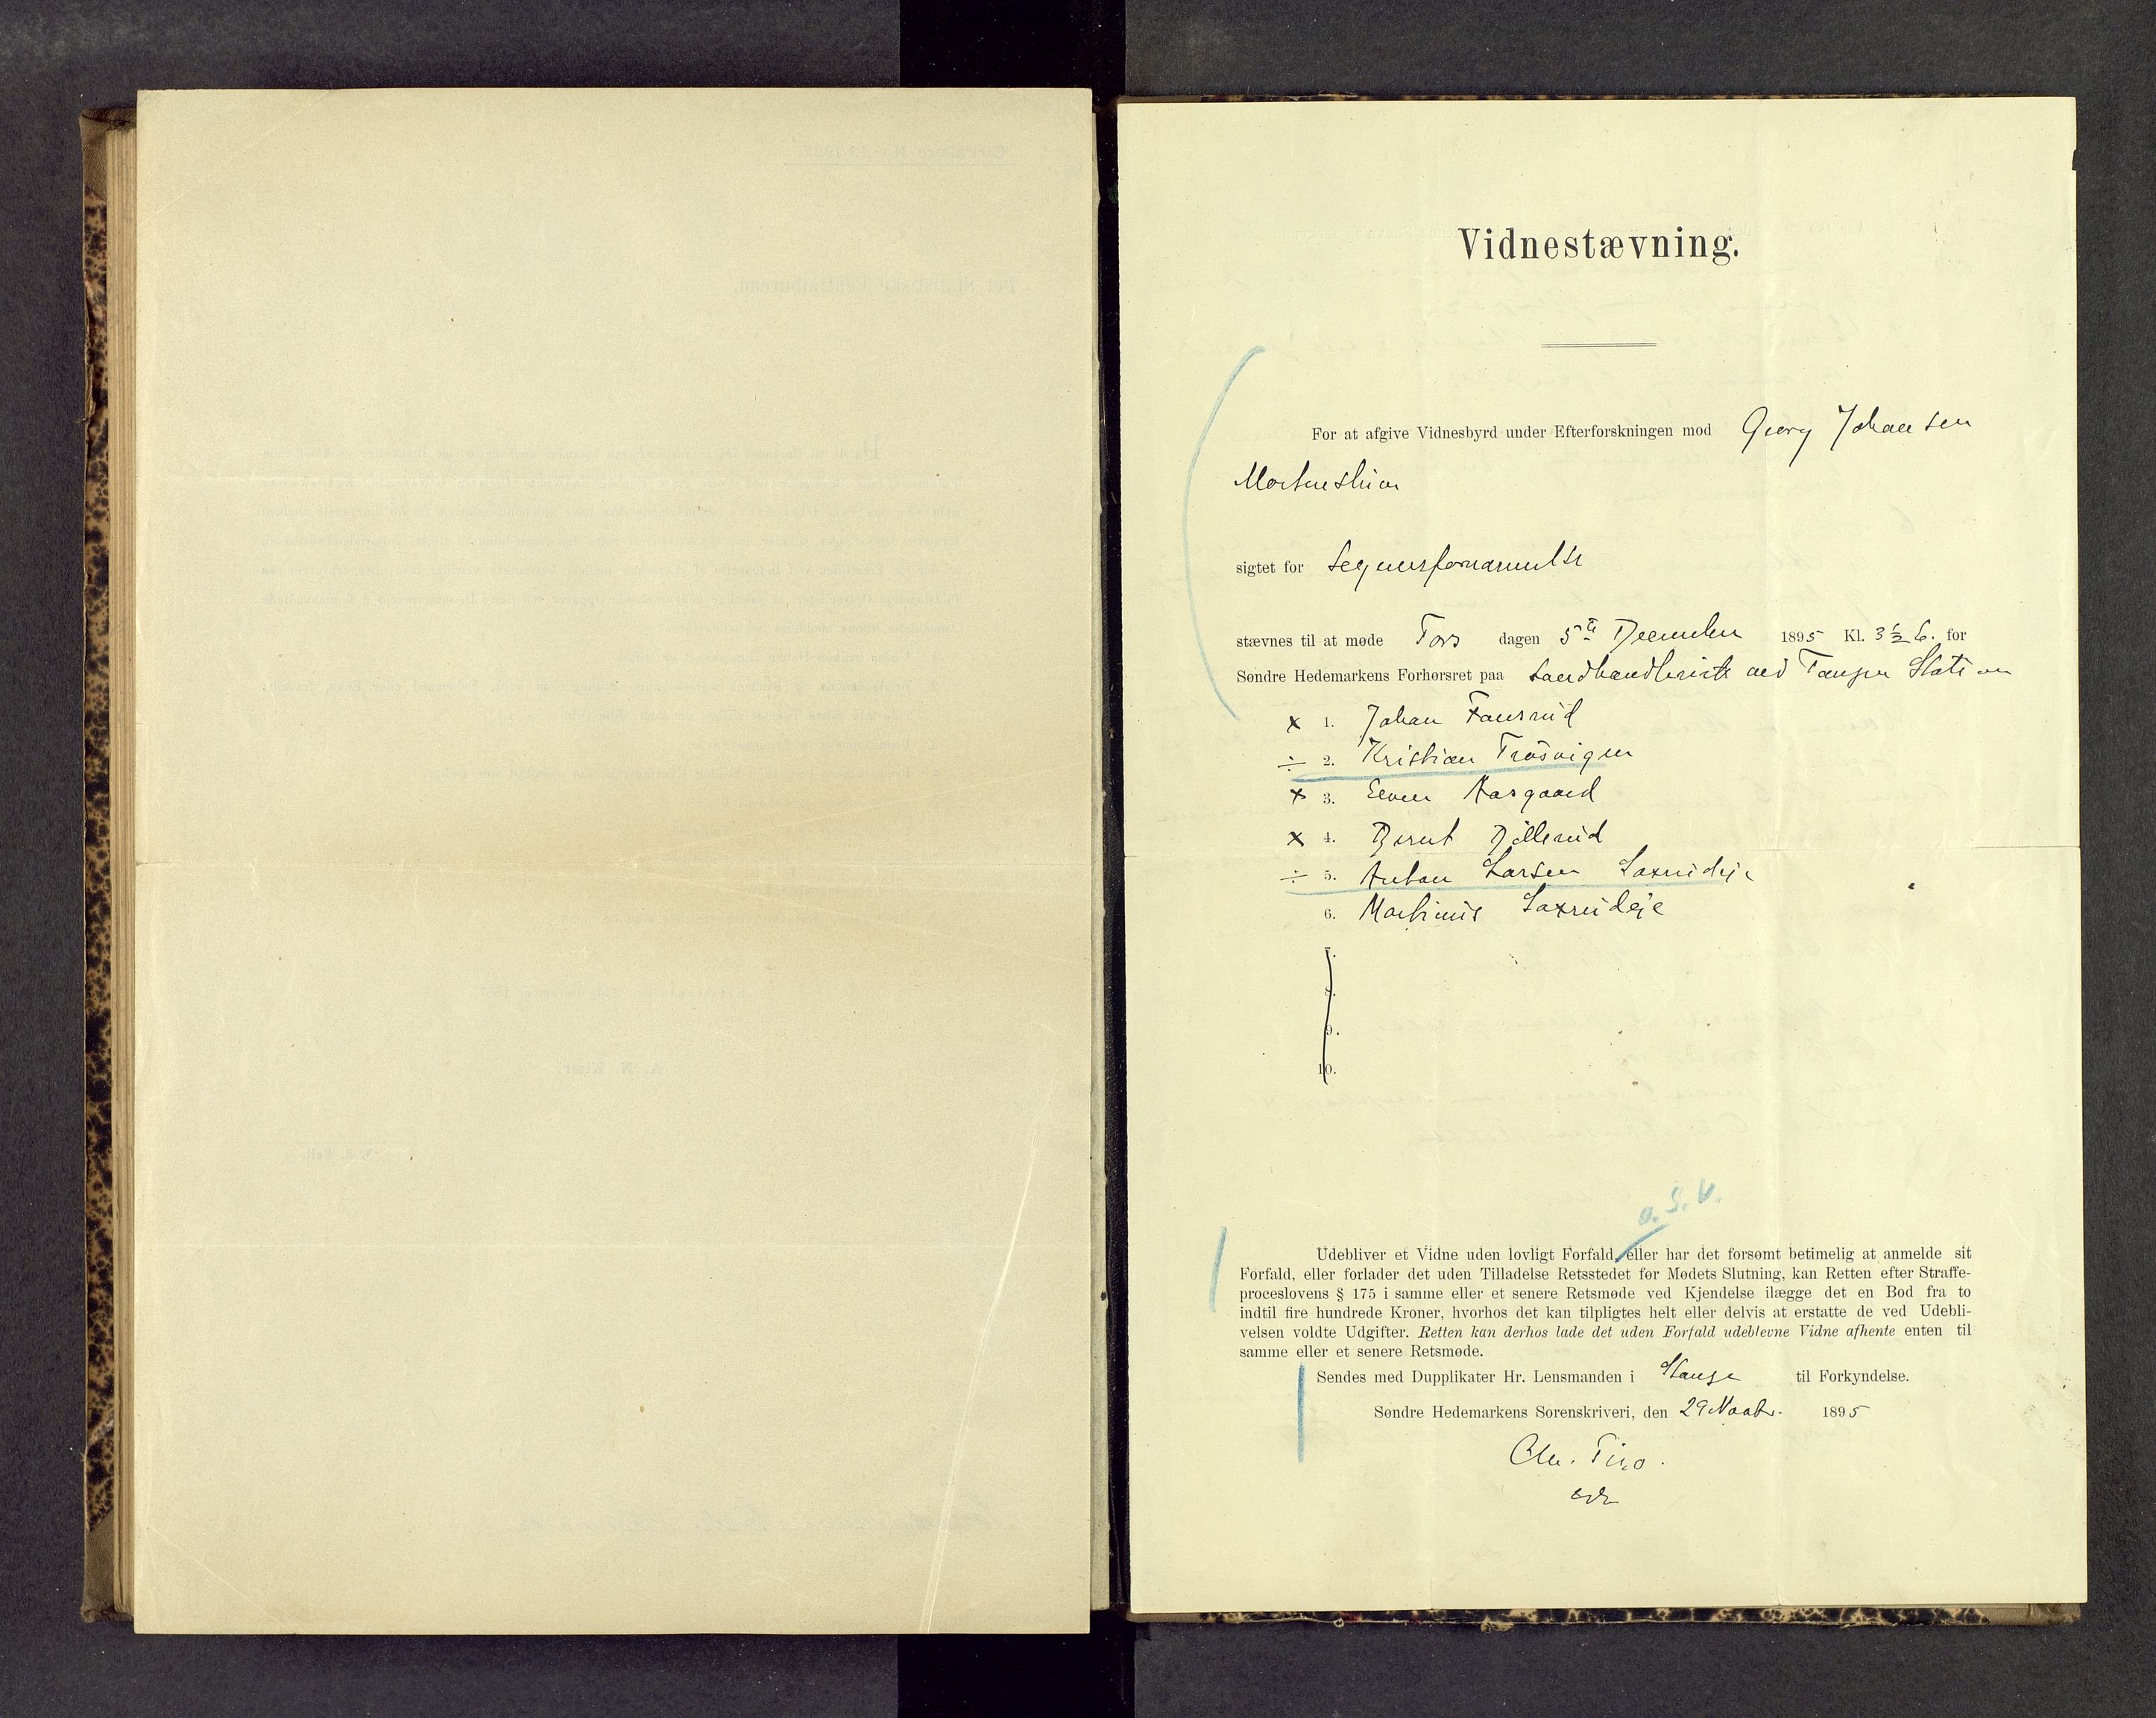 Vidnestævning.
For at afgive Vidnesbyrd under Efterforskningen mod Georg Johansen
sigtet for Legemsfornærmelse
stævnes til at møde Tors dagen 5te December 1895 Kl. 3½ E. for
Søndre Hedemarkens Forhørsret paa Landhandleriet ved Tangen Station
x 1. Johan
÷ 2. Kristian Traasvigen
x 3. Even Aasgaard
x 4. Bernt Billerud
÷ 5. Anton Larsen Laxrudeje
6. Martinus Laxrudeje
7.
8.
9.
10.
o. S. V.
Udebliver et Vidne uden lovligt Forfald, eller har det forsømt betimelig at anmelde sit
Forfald, eller forlader det uden Tilladelse Retsstedet før Mødets Slutning, kan Retten efter Straffe-
proceslovens § 175 i samme eller et senere Retsmøde ved Kjendelse ilægge det en Bod fra to
indtil fire hundrede Kroner, hvorhos det kan tilpligtes helt eller delvis at erstatte de ved Udebli-
velsen voldte Udgifter. Retten kan derhos lade det uden Forfald udeblevne Vidne afhente enten til
samme eller et senere Retsmøde.
Sendes med Dupplikater Hr. Lensmanden i Stange til Forkyndelse.
Søndre Hedemarkens Sorenskriveri, den 29 Novbr. 1895